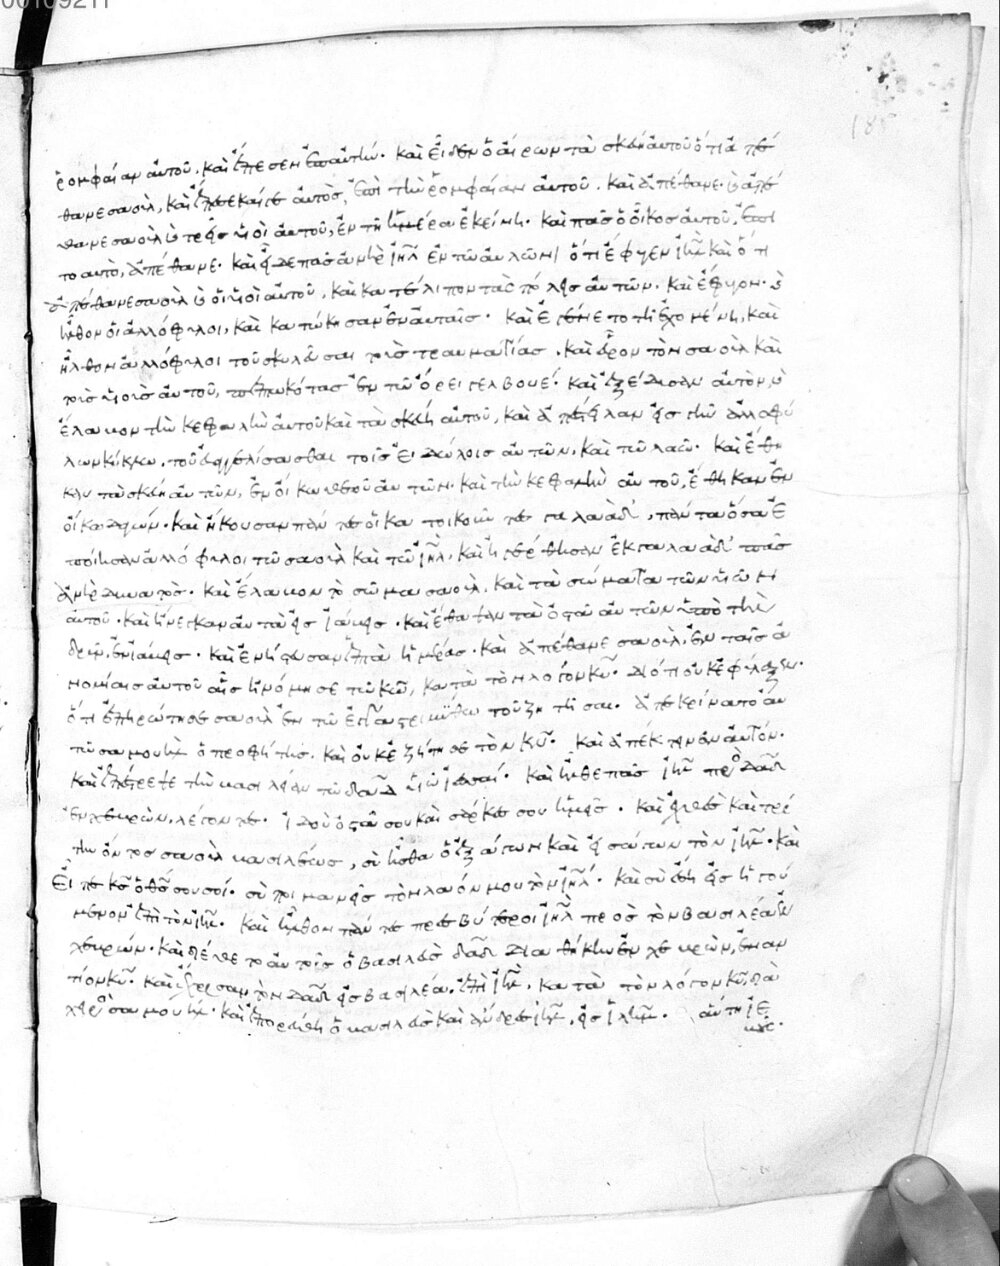 00109211
ῥομφαίαν αὐτοῦ, καὶ ἔπεσεν ἐπ αὐτήν. καὶ εἶδεν ὁ αἴρων τὰ σκεύη αὐτοῦ ὅτι ἀπέ
θανε σαοὺλ, καὶ ἔπεσε καί γε αὐτὸς, ἐπὶ τὴν ῥομφαίαν αὐτοῦ. καὶ ἀπέθανε
θανε σαοὺλ καὶ τρεῖς υἱοὶ αὐτοῦ, ἐν τῇ ἡμέρα ἐκείνη. καὶ πᾶς ὁ οἶκος αὐτοῦ, ἐπὶ
το αυτὸ, ἀπέθανε. καὶ εἶδε πᾶς ἀνὴρ ἰηλ ἐν τῶ αὐλῶνι ὅτι ἔφυγεν ἰηλ καὶ ὅτι
ἀπέθανε σαοὺλ καὶ οἱ υἱοὶ αὐτοῦ, καὶ κατέλιπον τὰς πόλεις αὐτῶν. καὶ ἔφυγον. καὶ
ἦλθον οἱ ἀλλόφυλοι, καὶ κατώκησαν ἐν αὐταῖς. καὶ ἐγένετο τῆ ἐχομένη, καὶ
ἦλθον ἀλλόφυλοι τοῦ σκυλεῦσαι τοὺς τραυματίας. καὶ εὗρον τὸν σαοὺλ καὶ
τοὺς υἱοὺς αὐτοῦ, πεπτωκότας ἐν τῶ ὄρει γελβουέ. καὶ ἐξέδυσαν αὐτὸν, καὶ
ἔλαβον τὴν κεφαλὴν αὐτοῦ καὶ τὰ σκεύη αὐτοῦ, καὶ ἀπέστειλαν εἰς γῆν ἀλλοφύ
λων κύκλω, τοῦ εὐαγγελίσασθαι τοῖς εἰδώλοις αὐτῶν, καὶ τῶ λαῶ. καὶ ἔθη
καν τὰ σκεύη αὐτῶν, ἐν οἴκω θεοῦ αὐτῶν. καὶ τὴν κεφαλὴν αὐτοῦ, ἔθηκαν ἐν
οἴκω δαγών. καὶ ἤκουσαν πάντες οἱ κατοικοῦντες γαλαὰδ, πάντα ὅσα ἐ
ποίησαν ἀλλόφυλοι τῶ σαοὺλ καὶ τῶ ἰηλ, καὶ ἠγέρθησαν ἐκ γαλαὰδ πᾶς
ἀνὴρ δυνατός. καὶ ἔλαβον τὸ σῶμα σαοὺλ, καὶ τὰ σώματα τῶν υἱῶν
αὐτοῦ. καὶ ἤνεγκαν αὐτὰ εἰς ἰάβεις. καὶ ἔθαψαν τὰ ὀστᾶ αὐτῶν ὑπὸ τὴν
δρῦν, ἐν ἰάβεις. καὶ ἐνήστευσαν ἑπτὰ ἡμέρας. καὶ ἀπέθανε σαοὺλ, ἐν ταῖς ἀ
νομίαις αὐτοῦ αἷς ἠνόμησε τῶ κω, κατὰ τὸν λόγον κυ. διότι οὐκ ἐφύλαξεν.
ὅτι ἐπηρώτησε σαοὺλ ἐν τῶ ἐγγαστριμύθω τοῦ ζητῆσαι. ἀπεκρίνατο αὐ
τῶ σαμουὴλ ὁ προφήτης. καὶ οὐκ ἐζήτησε τὸν κν. καὶ ἀπέκτεινεν αὐτόν.
καὶ ἐπέστρεψε τὴν βασιλείαν τῶ δαυὶδ υἱῶ ἰεσσαί. καὶ ἦλθε πᾶς ἰηλ πρὸς δαδ
ἐν χεβρών, λέγοντες. ἰδοὺ ὀστᾶ σου καὶ σάρκες σου ἡμεῖς. καὶ χθὲς καὶ τρί
την ὄντος σαοὺλ βασιλέως, σὺ ἦσθα ὁ ἐξάγων καὶ εἰσάγων τὸν ἰηλ. καὶ
εἶπε κς ὁ θς σου σοί. σὺ ποιμανεῖς τὸν λαόν μου τὸν ἰηλ. καὶ σὺ ἔση εἰς ἡγού
μενον ἐπὶ τὸν ἰηλ. καὶ ἦλθον πάντες πρεσβύτεροι ἰηλ πρὸς τὸν βασιλέα ἐν
χεβρών. καὶ διέθετο αὐτοῖς ὁ βασιλεὺς δαδ διαθήκην ἐν χεβρὼν, ἐναν
τίον κυ. καὶ ἔχρισαν τὸν δαδ εἰς βασιλέα, ἐπὶ ἰηλ, κατὰ τὸν λόγον κυ, διὰ
χειρὸς σαμουήλ. καὶ ἐπορεύθη ὁ βασιλεὺς καὶ ἄνδρες ἰηλ, εἰς ἰλημ. αὕτη ἰε
βούς.